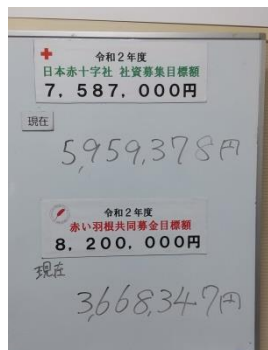 令和2年度
日本赤十字社 社資募集目標額
7,587,000円
現在
5,959,378円
令和2年度
赤い羽根共同募金目標額
8,200,000円
現在
3,668,347円